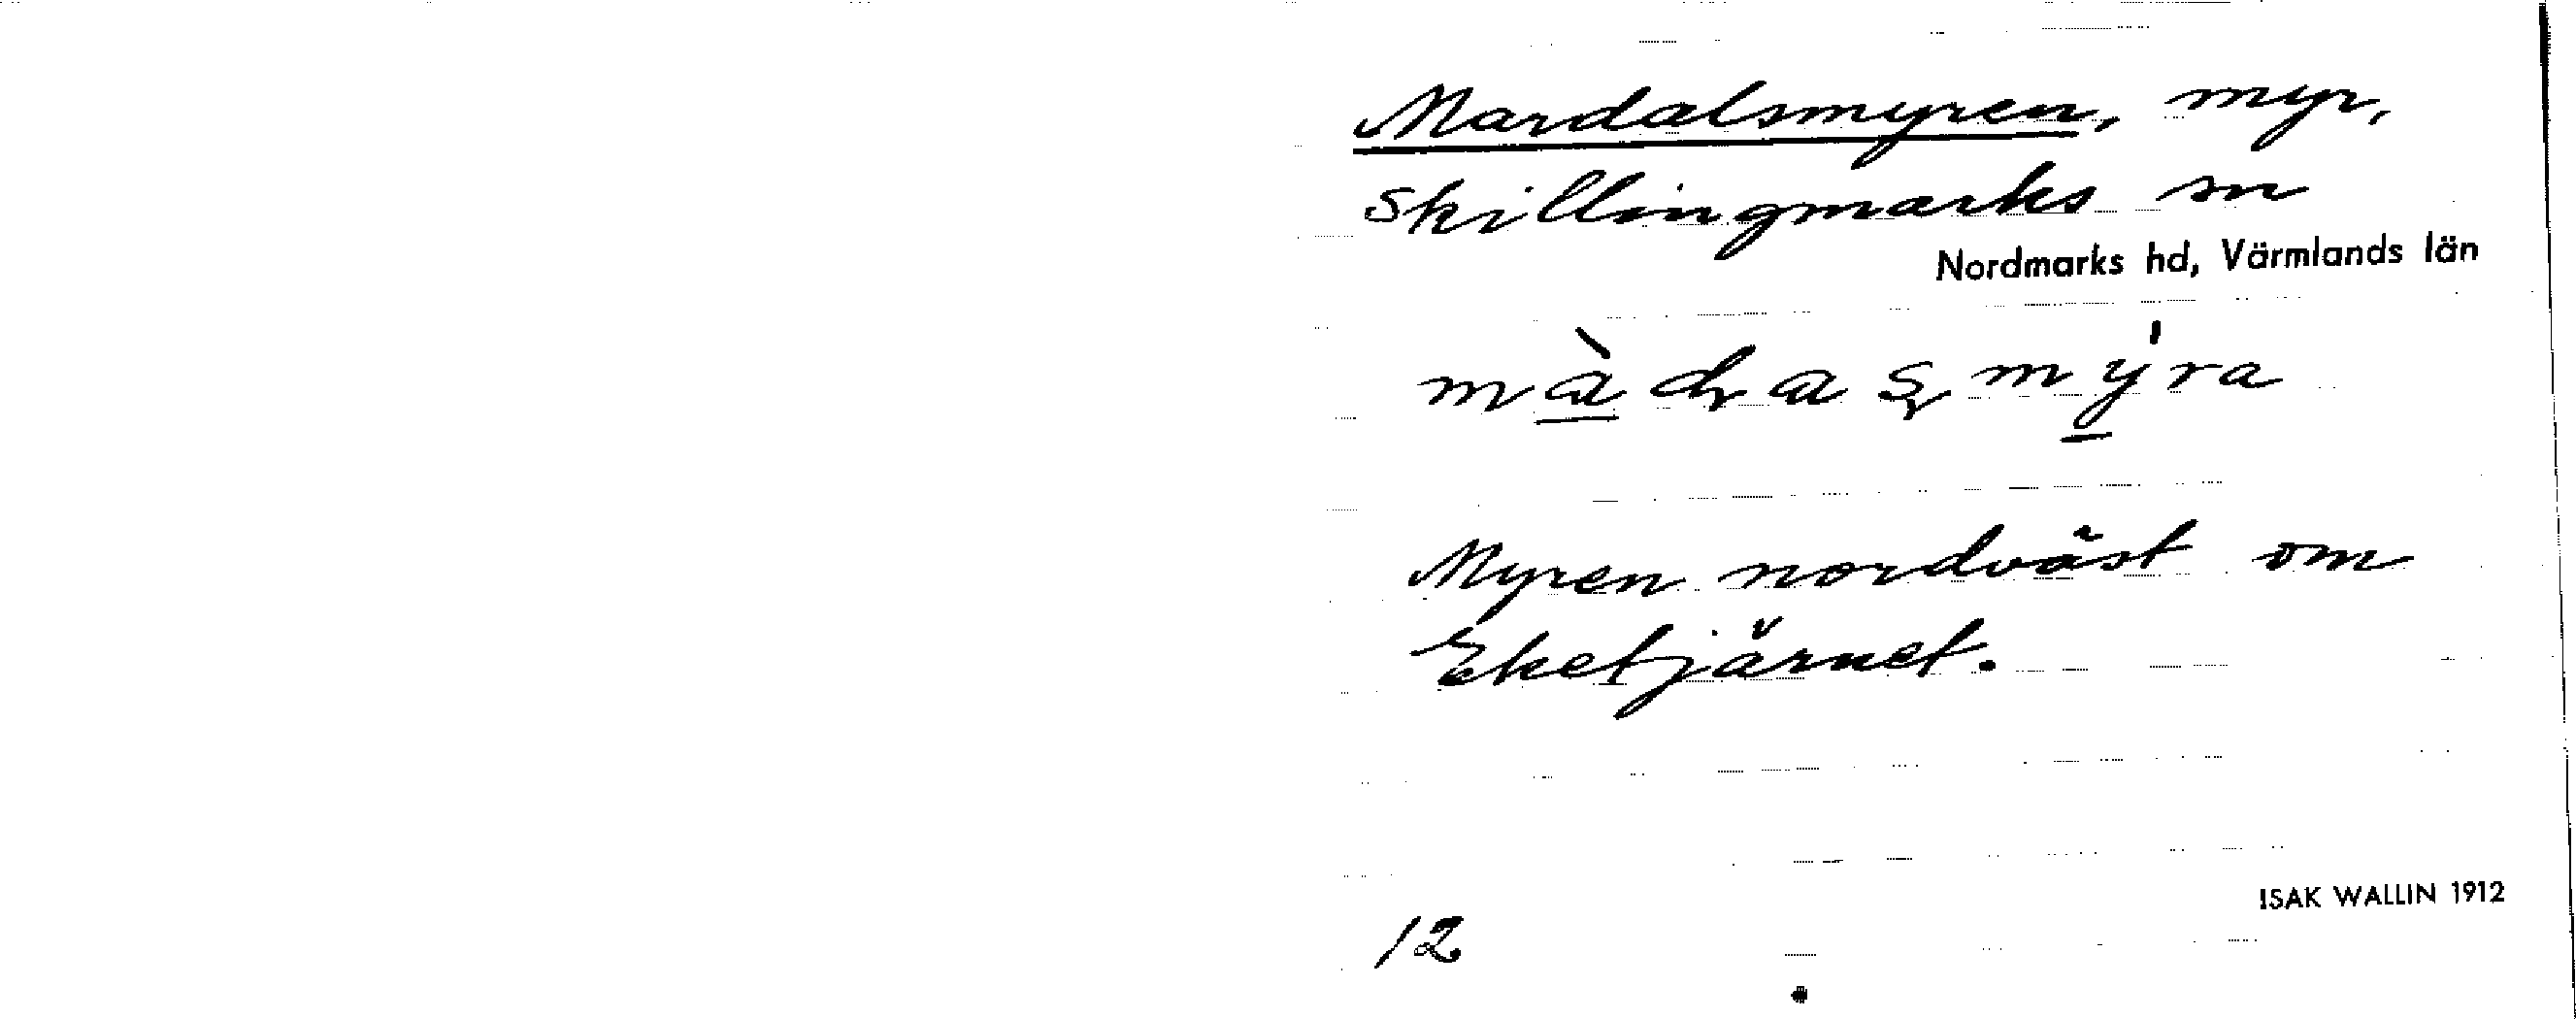 Mardalsmyren, myr,
Skillingmarks sn
Nordmarks hd, Värmlands län
màɖaʂmýra
Myren nordväst om
Eketjärnet.
ISAK WALLIN 1912
12